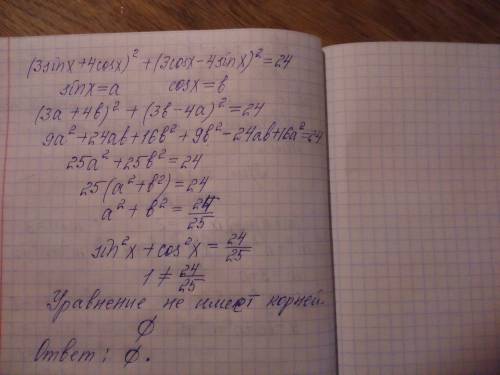 (3sinx+4cosx)² + (3cosx-4sinx)² = 24
sinx=a cosx=b
(3a+4b)² + (3b-4a)² = 24
9a²+24ab+16b²+9b²-24ab+16a²=24
25a²+25b²=24
25(a²+b²)=24
a²+b²=24/25
sin²x+cos²x=24/25
1≠24/25
Уравнение не имеет корней.
∅
Ответ: ∅.